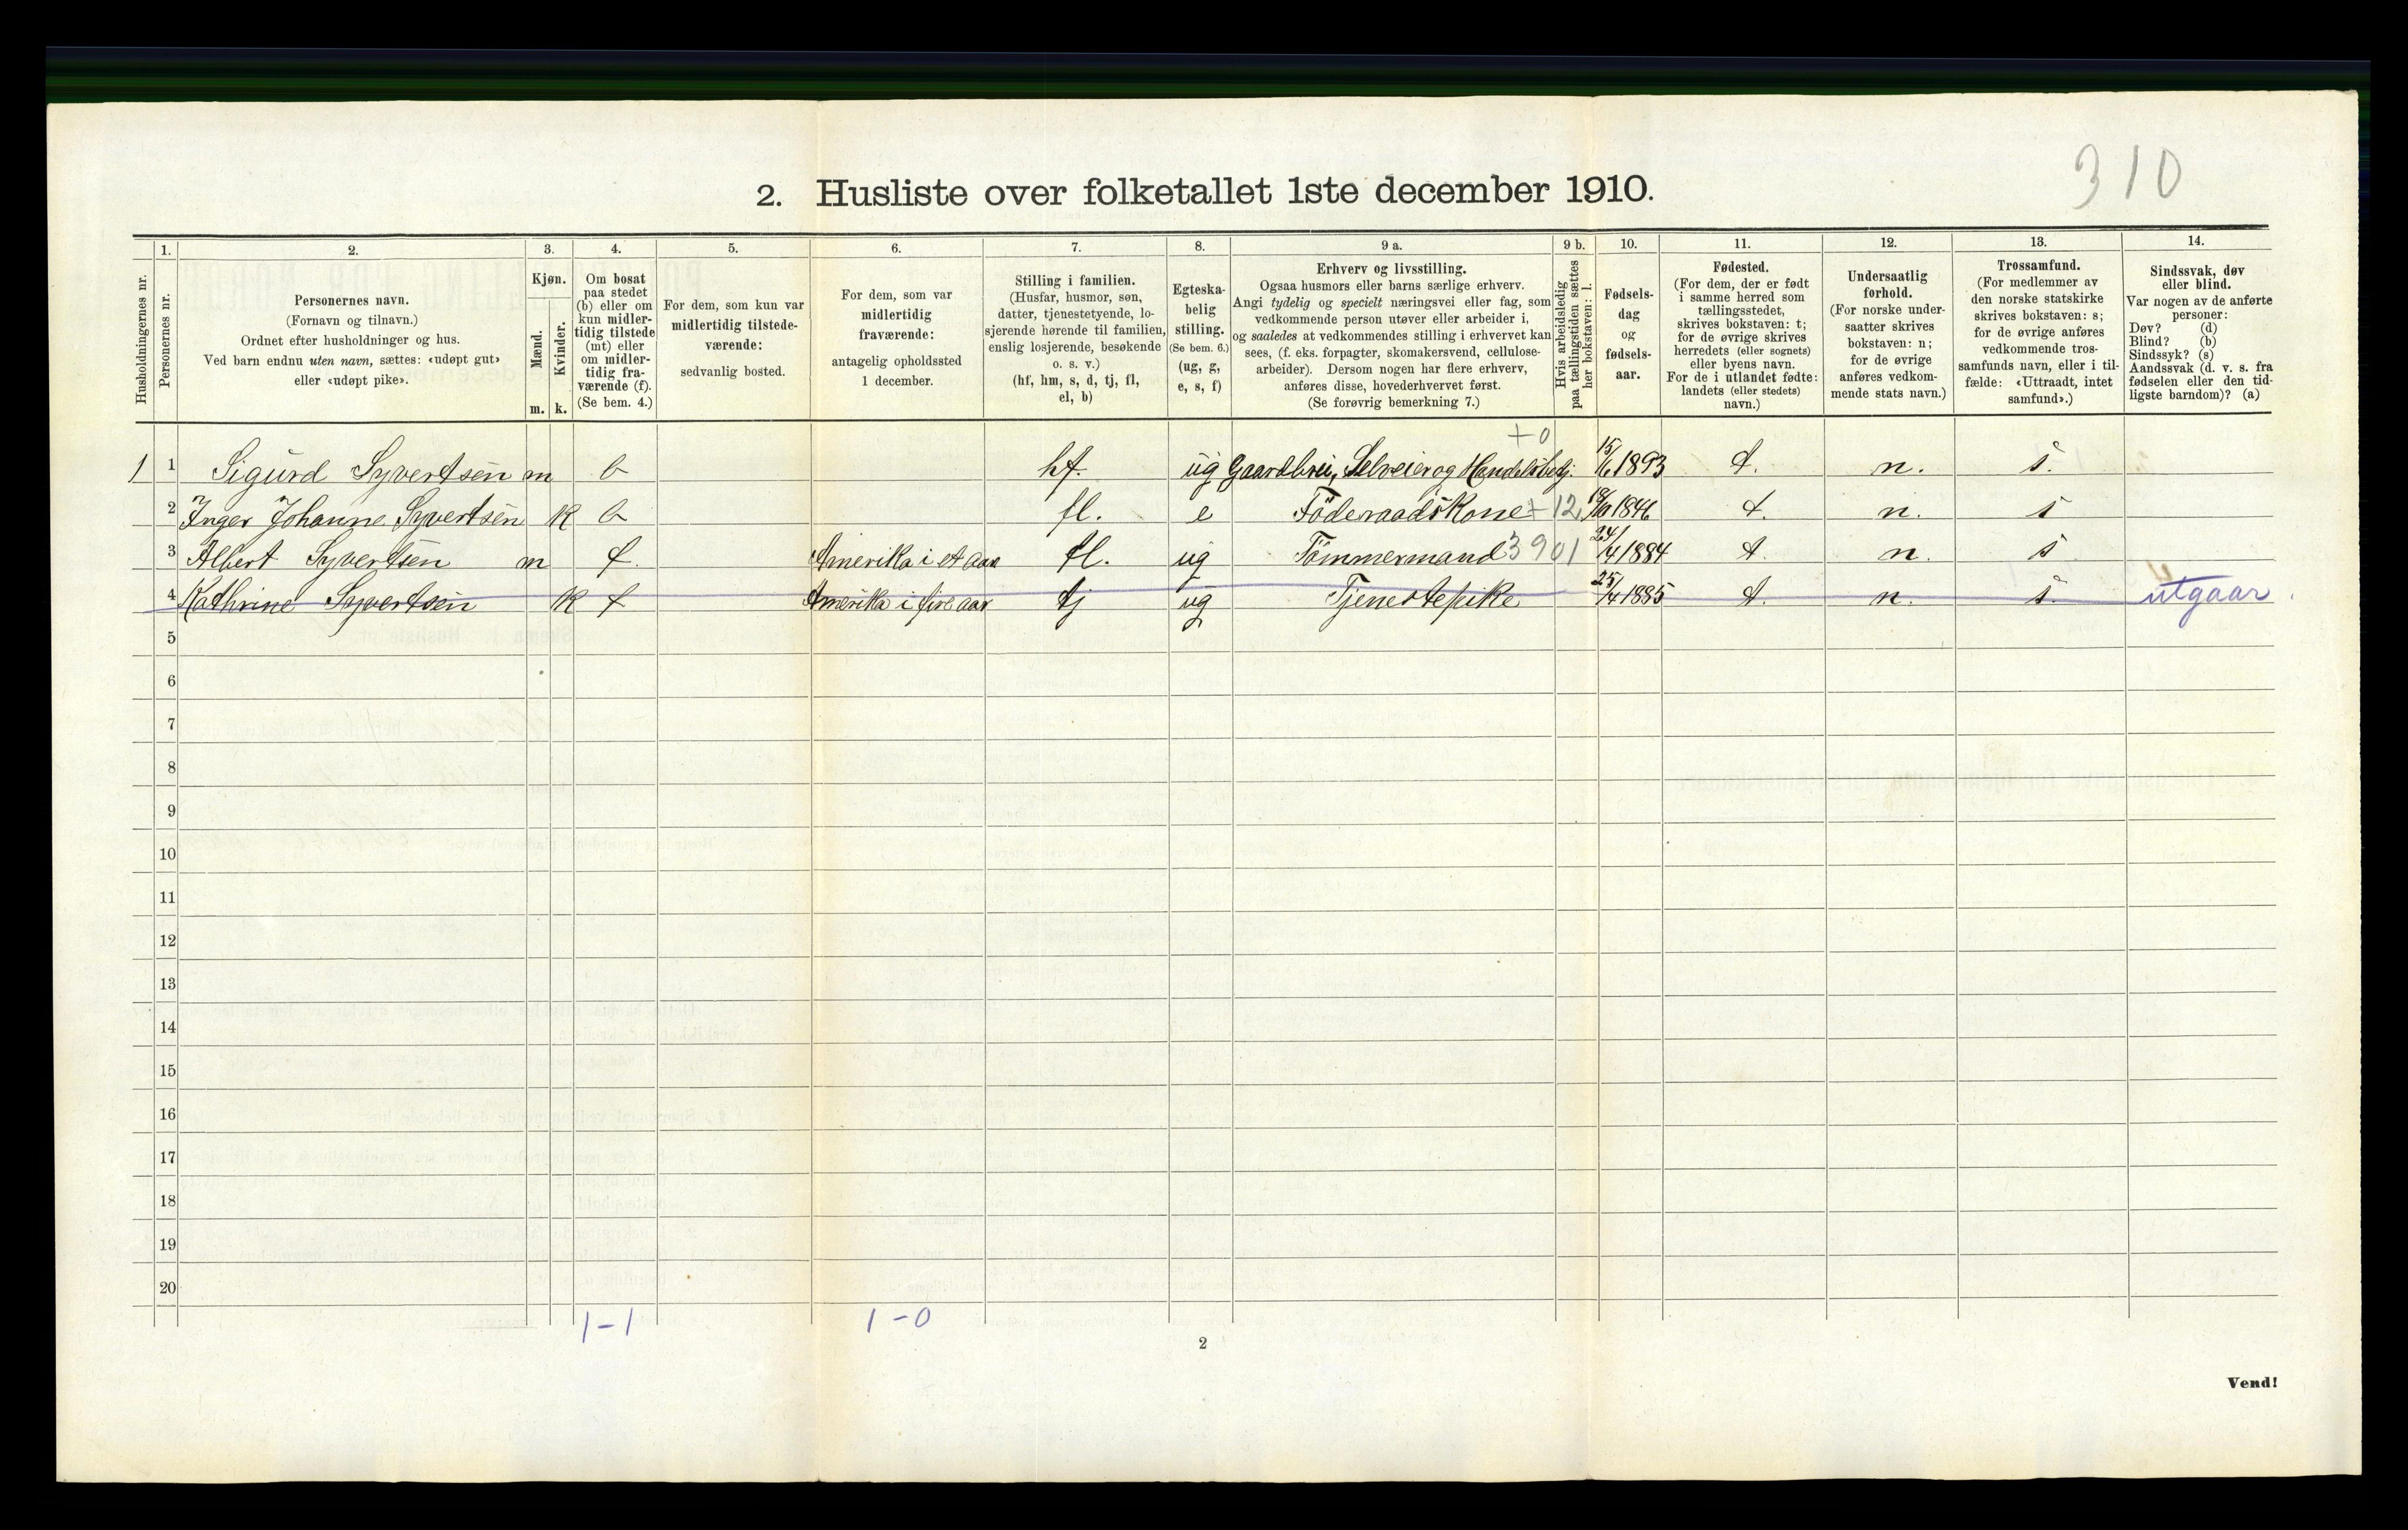 310
2. Husliste over folketallet 1ste december 1910.
Husholdningernes nr.
1.
Personernes nr.
2.
Personernes navn.
(Fornavn og tilnavn.)
Ordnet efter husholdninger og hus.
Ved barn endnu uten navn, sættes: «udøpt gut»
eller «udøpt pike».
3.
Kjøn.
Mænd.
Kvinder.
m. k.
4.
Om bosat
paa stedet
(b) eller om
kun midler-
tidig tilstede
(mt) eller
om midler-
tidig fra-
værende (f).
(Se bem. 4.)
5.
For dem, som kun var
midlertidig tilstede-
værende:
sedvanlig bosted.
6.
For dem, som var
midlertidig
fraværende:
antagelig opholdssted
1 december.
7.
Stilling i familien.
(Husfar, husmor, søn,
datter, tjenestetyende, lo-
sjerende hørende til familien,
enslig losjerende, besøkende
o. s. v.)
(hf, hm, s, d, tj, fl,
el, b)
8.
Egteska-
belig
stilling.
(Se bem. 6.)
(ug, g,
e, s, f)
9 a.
Erhverv og livsstilling.
Ogsaa husmors eller barns særlige erhverv.
Angi tydelig og specielt næringsvei eller fag, som
vedkommende person utøver eller arbeider i,
og saaledes at vedkommendes stilling i erhvervet kan
sees, (f. eks. forpagter, skomakersvend, cellulose-
arbeider). Dersom nogen har flere erhverv,
anføres disse, hovederhvervet først.
(Se forøvrig bemerkning 7.)
9 b.
Hvis arbeidsledig
paa tællingstiden sættes
her bokstaven: l.
10.
Fødsels-
dag
og
fødsels-
aar.
11.
Fødested.
(For dem, der er født
i samme herred som
tællingsstedet,
skrives bokstaven: t;
for de øvrige skrives
herredets (eller sognets)
eller byens navn.
For de i utlandet fødte:
landets (eller stedets)
navn.)
12.
Undersaatlig
forhold.
(For norske under-
saatter skrives
bokstaven: n;
for de øvrige
anføres vedkom-
mende stats navn.)
13.
Trossamfund.
(For medlemmer av
den norske statskirke
skrives bokstaven: s;
for de øvrige anføres
vedkommende tros-
samfunds navn, eller i til-
fælde: «Uttraadt, intet
samfund».)
14.
Sindssvak, døv
eller blind.
Var nogen av de anførte
personer:
Døv? (d)
Blind? (b)
Sindssyk? (s)
Aandssvak (d. v. s. fra
fødselen eller den tid-
ligste barndom)? (a)
+0
1 1 Sigurd Syvertsen m b hf. ug Gaardbru, Selveier og Handelsbetj. 15/6 1893 t. n. s.
2 Inger Johanne Syvertsen k b fl. e Föderaadskone + 12 1846 t. n. s
3 Albert Syvertsen m f. Amerika i et aar fl. ug Tömmermand 3901 24/4 1884 t. n. s
4 Kathrine Syvertsen k f Amerika i fire aar tj ug Tjenestepike 25/4 1885 t. n. s. utgaar
5
6
7
8
9
10
11
12
13
14
15
16
17
18
19
20
1-1 1-0
2
Vend!